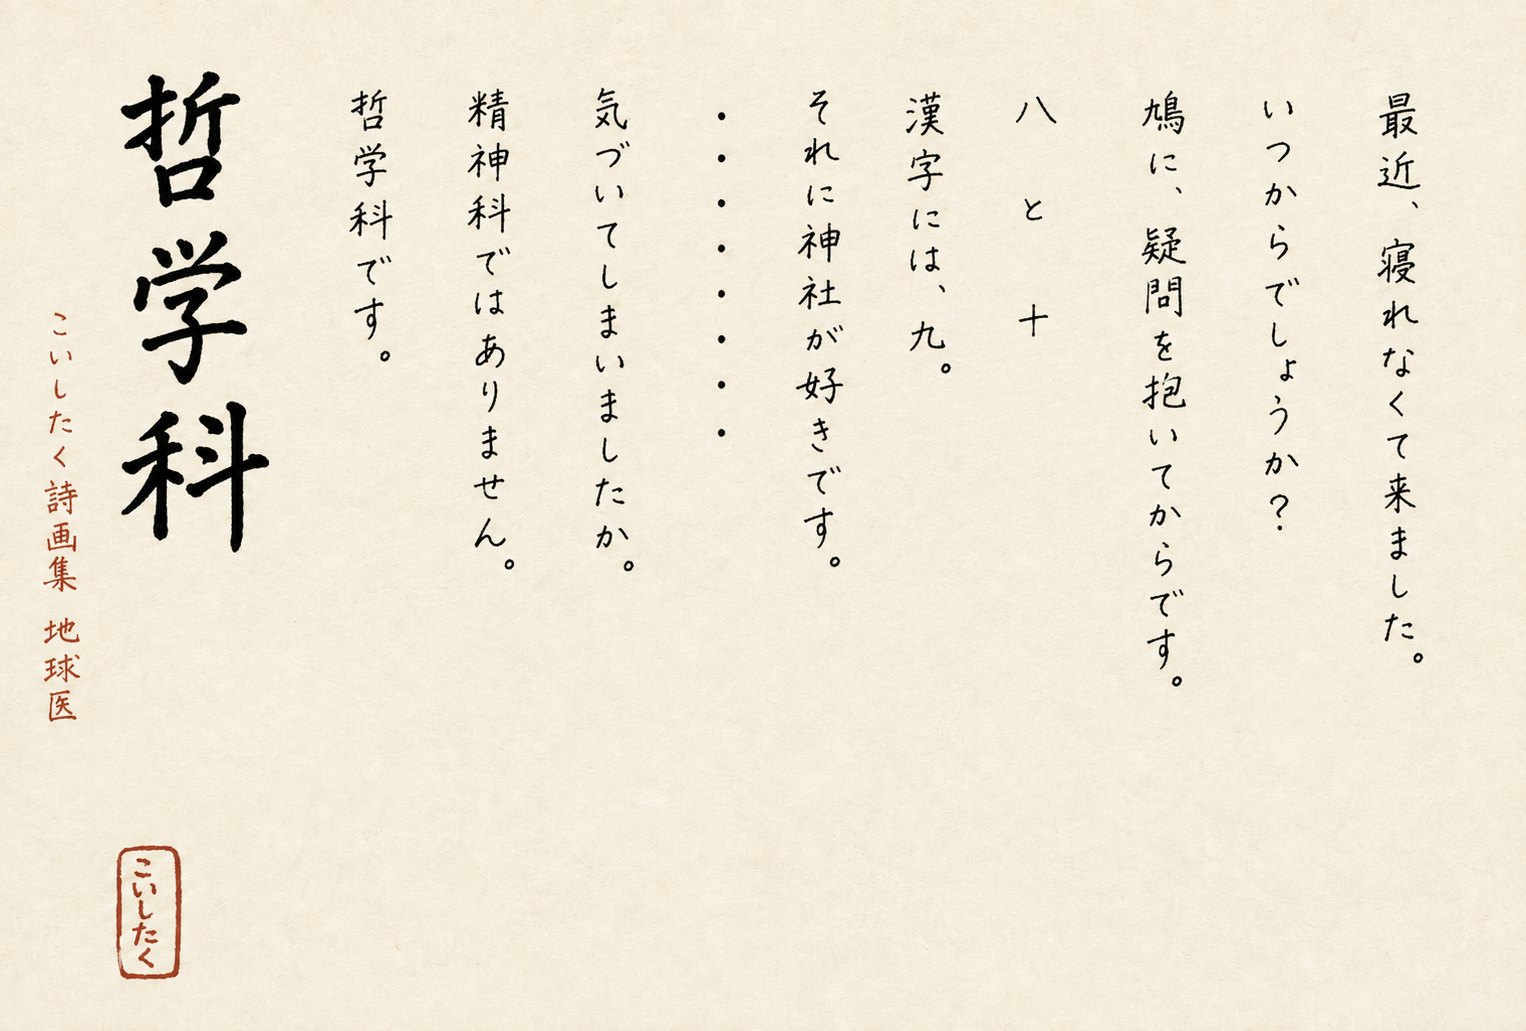 最近、寝れなくて来ました。
いつからでしょうか?
鳩に、疑問を抱いてからです。
八 と 十
漢字には、九。
それに神社が好きです。
・・・・・・・・
気づいてしまいましたか。
精神科ではありません。
哲学科です。
哲学科
こいしたく詩画集 地球医
こいしたく